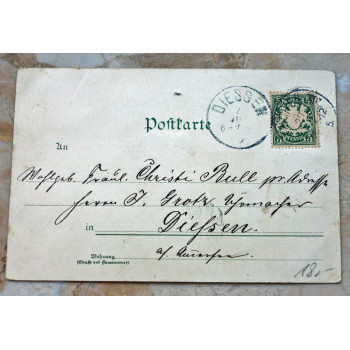 DIESSEN
Postkarte
An
Wohlgeb. Fräul. Christi Bull pr. Adresse
Herrn J. Grotz Uhrmacher
in Diessen
a/ Ammersee
Wohnung
(Straße und Hausnummer)
18,-